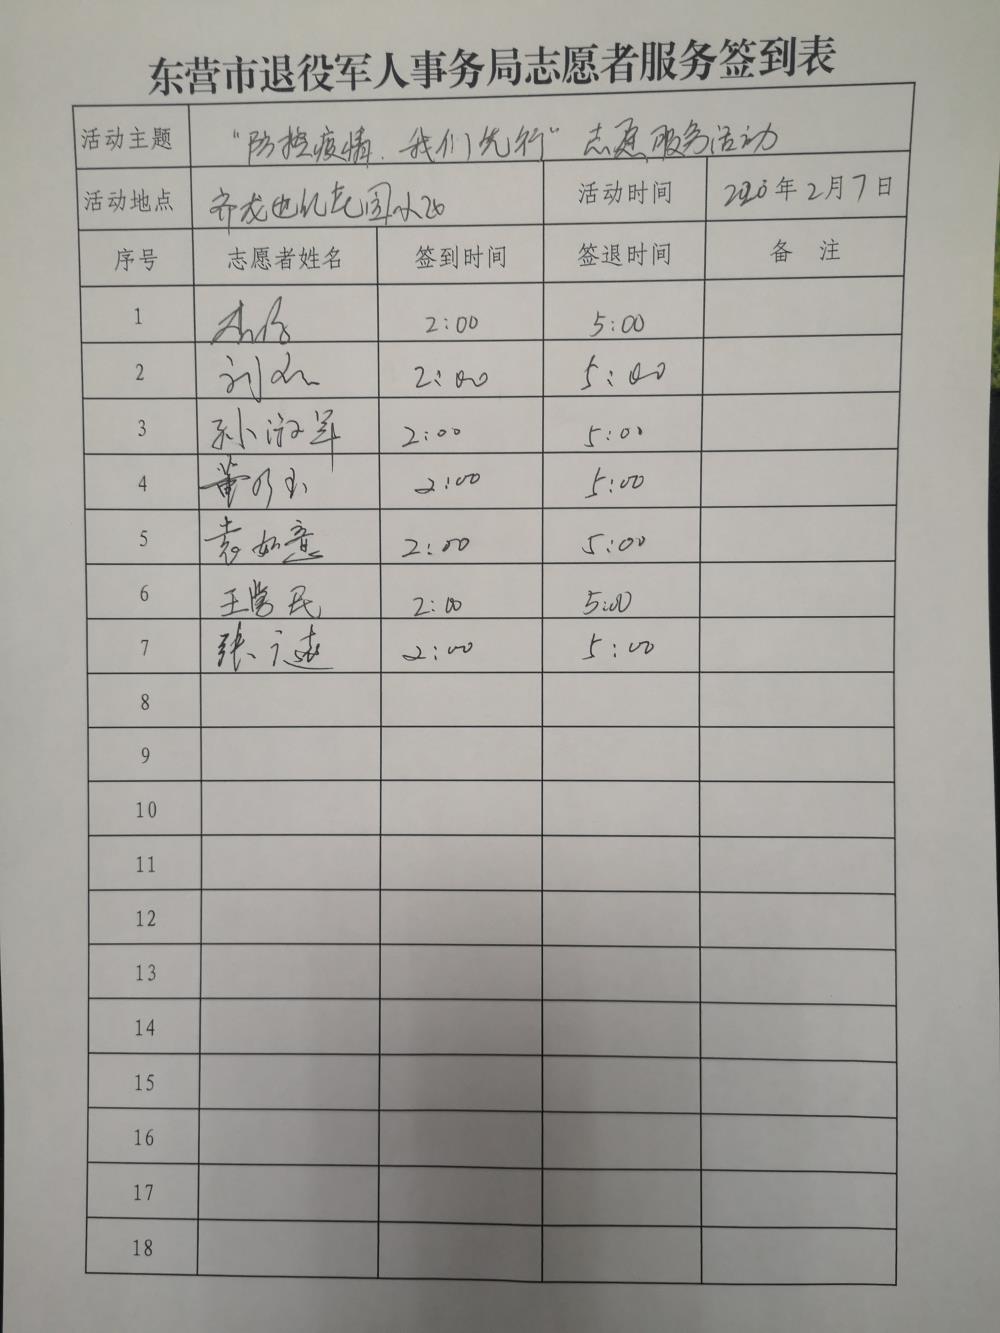 东营市退役军人事务局志愿者服务签到表
活动主题 "防控疫情.我们先行"志愿服务活动
活动地点 活动时间 2020年2月7日
序号 志愿者姓名 签到时间 签退时间 备 注
1 2:00 5:00
2 刘 2:00 5:00
3 孙淑军 2:00 5:00
4 董乃玉 2:00 5:00
5 袁如意 2:00 5:00
6 王学民 2:00 5:00
7 张 2:00 5:00
8
9
10
11
12
13
14
15
16
17
18